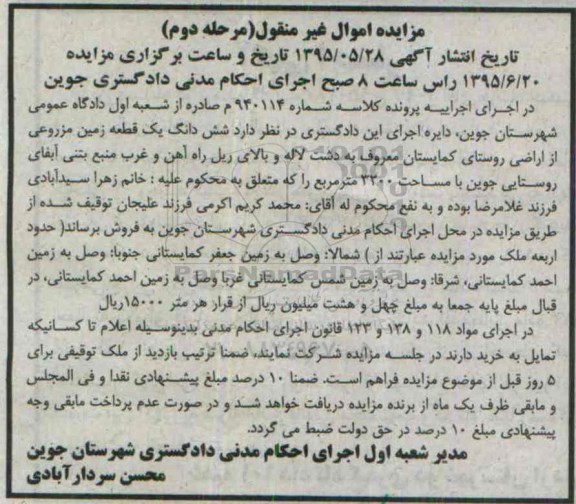 مزایده اموال غیر منقول(مرحله دوم)
تاریخ انتشار آگهی ۱۳۹۵/۰۵/۲۸ تاریخ و ساعت برگزاری مزایده
۱۳۹۵/۶/۲۰ راس ساعت ۸ صبح اجرای احکام مدنی دادگستری جوین
در اجرای اجراییه پرونده کلاسه شماره ۹۴۰۱۱۴ م صادره از شعبه اول دادگاه عمومی
شهرستان جوین، دایره اجرای این دادگستری در نظر دارد شش دانگ یک قطعه زمین مزروعی
از اراضی روستای کمایستان معروف به دشت لاله و بالای ریل راه آهن و غرب منبع بتنی آبفای
روستایی جوین با مساحت ۳۲۰۰ مترمربع را که متعلق به محکوم علیه : خانم زهرا سیدآبادی
فرزند غلامرضا بوده و به نفع محکوم له آقای: محمد کریم اکرمی فرزند علیجان توقیف شده از
طریق مزایده در محل اجرای احکام مدنی دادگستری شهرستان جوین به فروش برساند( حدود
اربعه ملک مورد مزایده عبارتند از ) شمالا: وصل به زمین جعفر کمایستانی جنوبا: وصل به زمین
احمد کمایستانی، شرقا: وصل به زمین شمس کمایستانی غربا وصل به زمین احمد کمایستانی، در
قبال مبلغ پایه جمعا به مبلغ چهل و هشت میلیون ریال از قرار هر متر ۱۵۰۰۰ریال
در اجرای مواد ۱۱۸ و ۱۳۸ و ۱۲۳ قانون اجرای احکام مدنی بدینوسیله اعلام تا کسانیکه
تمایل به خرید دارند در جلسه مزایده شرکت نمایند، ضمنا ترتیب بازدید از ملک توقیفی برای
۵ روز قبل از موضوع مزایده فراهم است. ضمنا ۱۰ درصد مبلغ پیشنهادی نقدا و فی المجلس
و مابقی ظرف یک ماه از برنده مزایده دریافت خواهد شد و در صورت عدم پرداخت مابقی وجه
پیشنهادی مبلغ ۱۰ درصد در حق دولت ضبط می گردد.
مدیر شعبه اول اجرای احکام مدنی دادگستری شهرستان جوین
محسن سردارآبادی
ParsNamadData